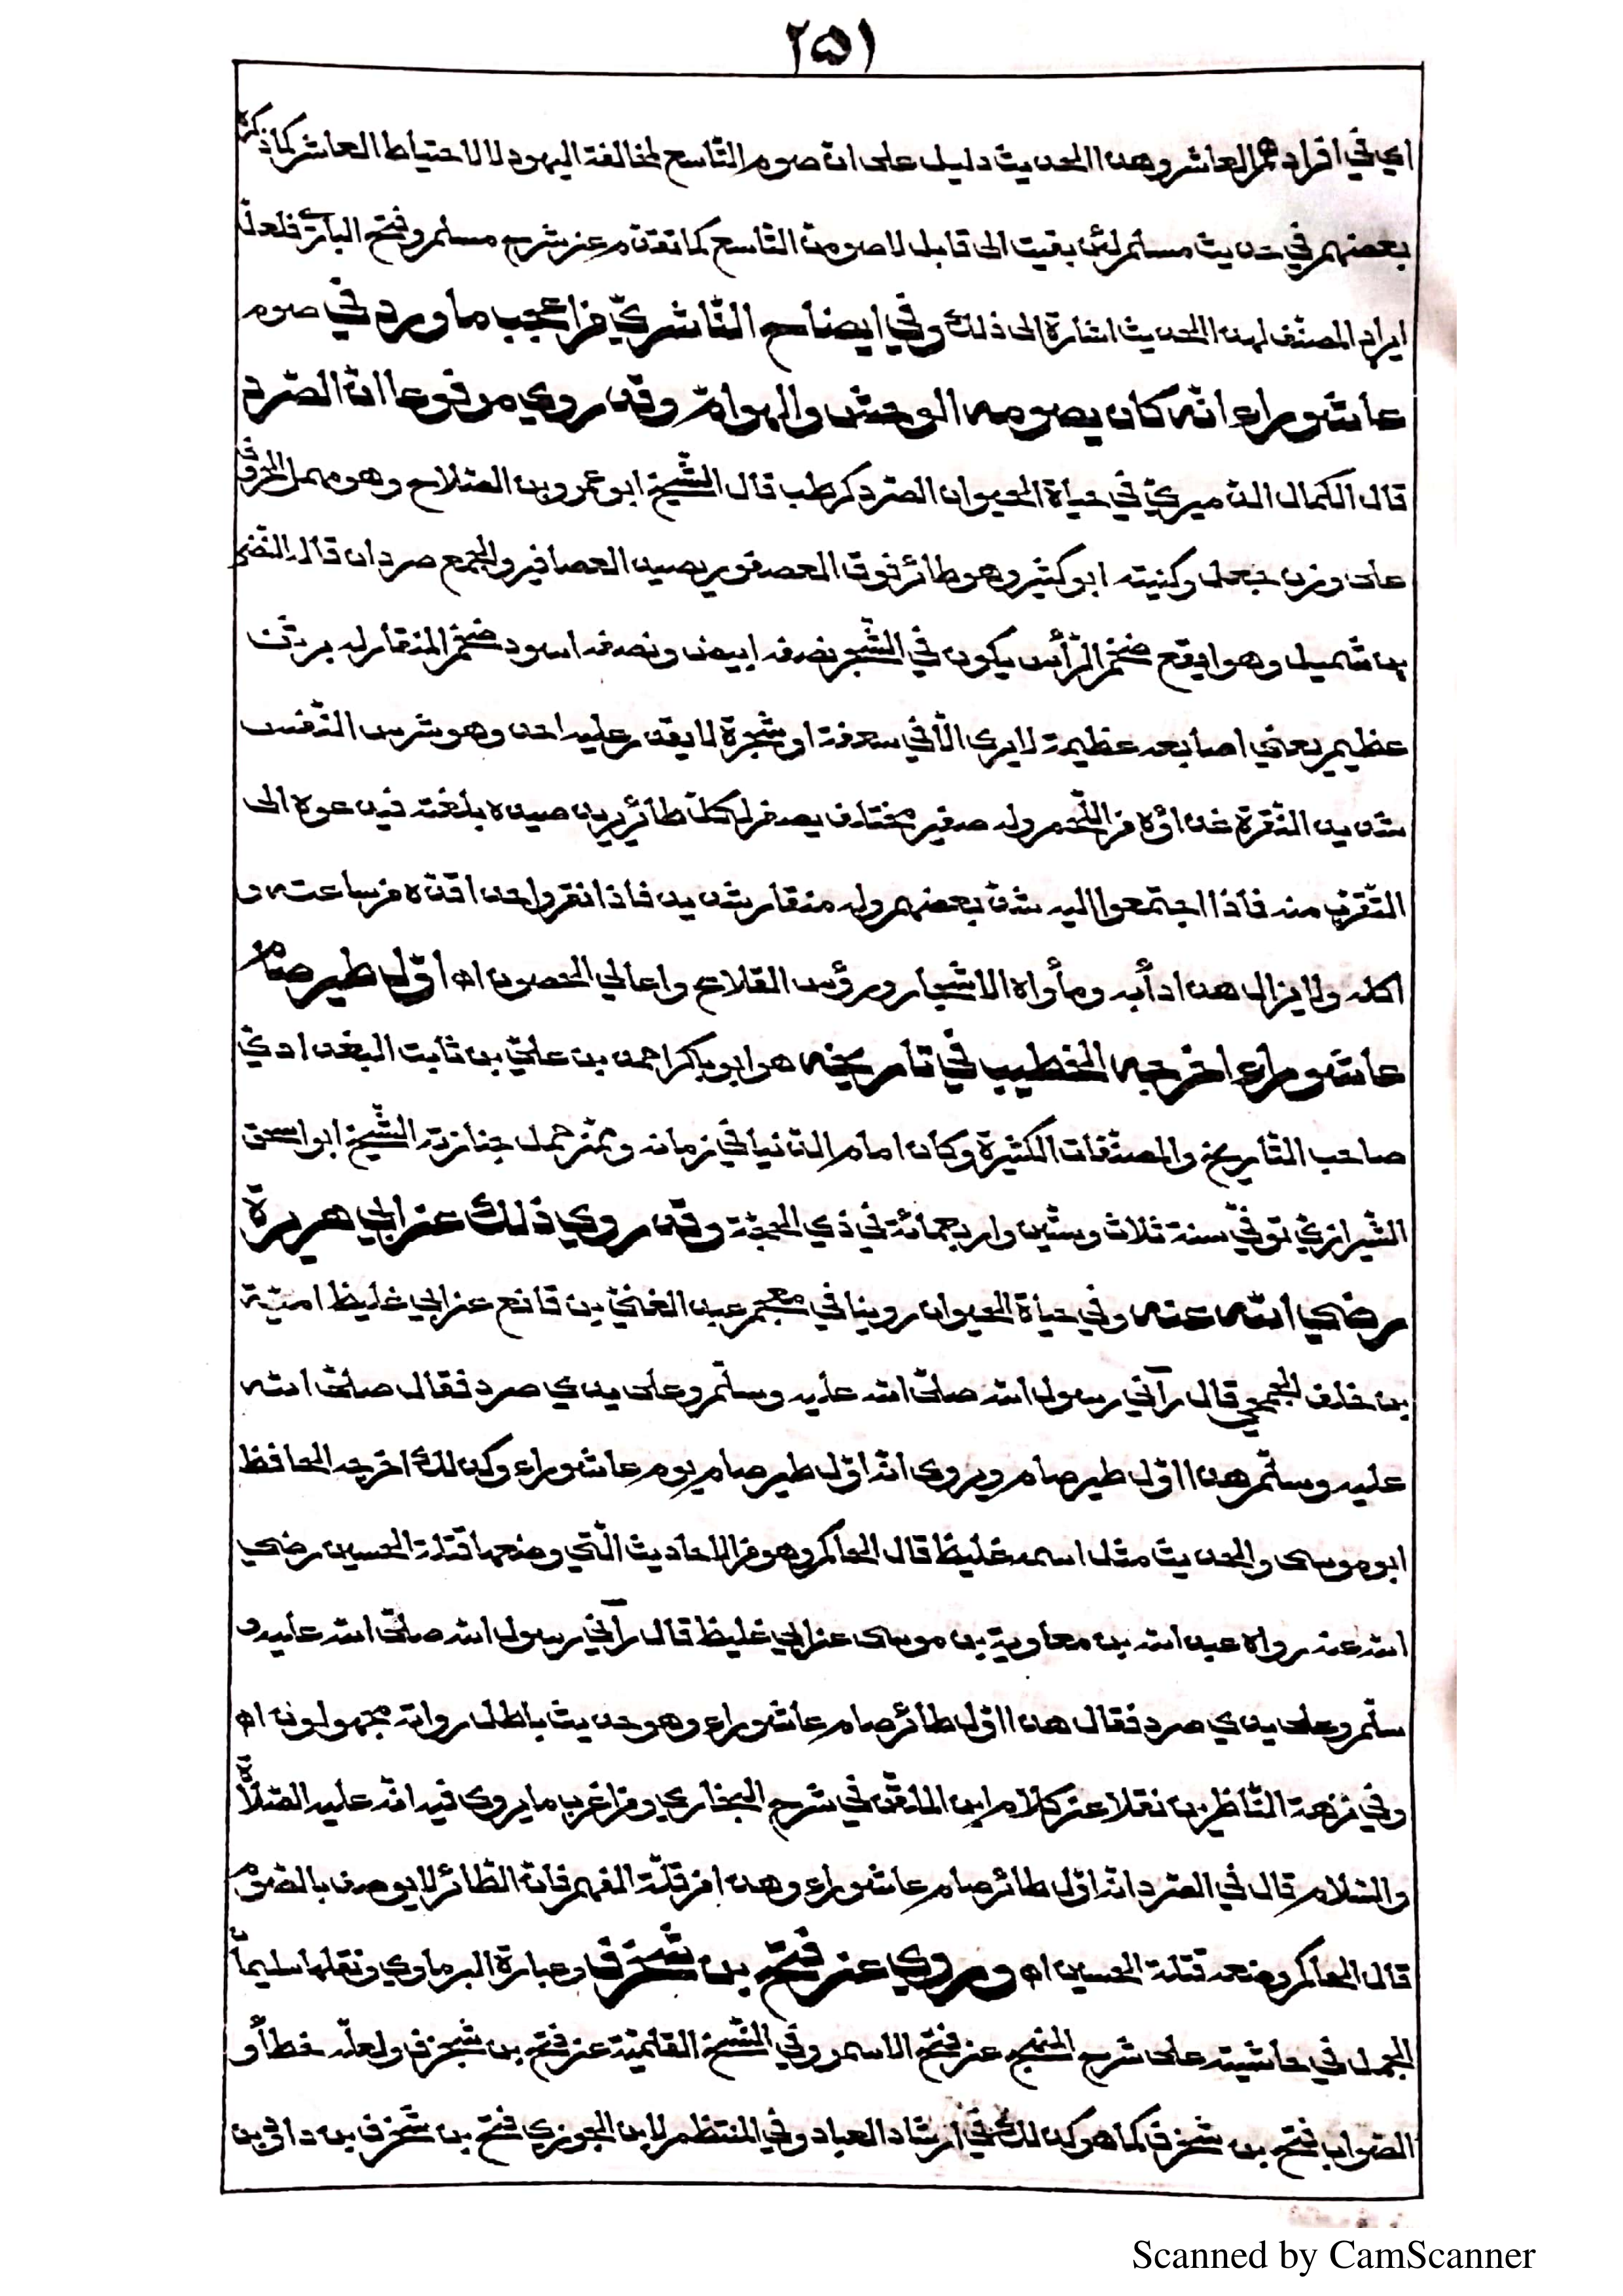 ٢٥١
اي في افراد هم العاشر وهذا الحديث دليل على ان صوم التّاسع لمخالفة اليهود لا لاحتياط العاشر كما ذكره
بعضهم في حديث مسلم لئن بقيت الى قابل لاصومنّ التّاسع كما تقدّم عن شرح مسلم وفتح الباريّ فلعلّ
ايراد المصنّف لهذا الحديث اشارة الى ذلك وفي ايضاح النّاشريّ من اعجب ما ورد في صوم
عاشوراء انّه كان يصومه الوحش والهوامّ وقد روي مرفوعا انّ الصّرد
قال الكمال الدّميريّ في حياة الحيوان الصّرد كرطب قال الشّيخ ابو عمرو بن الصّلاح وهو مهمل الحروف
على وزن جعل وكنيته ابو كثير وهو طائر فوق العصفور يصيد العصافير والجمع صردان قاله النّضر
بن شميل وهو ابقع ضخم الرّأس يكون في الشّجر نصفه ابيض ونصفه اسود ضخم المنقار له برثن
عظيم يعني اصابعه عظيمة لا يرى الّا في سعفة او شجرة لا يقدر عليه احد وهو شرس النّفس
شديد النّفرة غذاؤه من اللّحم وله صفير مختلف يصفر لكلّ طائر يريد صيده بلغته فيدعوه الى
التّقرّب منه فاذا اجتمعوا اليه شدّ بعضهم وله منقار شديد فاذا نقر واحدا قدّه من ساعته و
اكله ولا يزال هذا دأبه ومأواه الاشجار ورؤس القلاع واعالي الحصون اه اوّل طير صام
عاشوراء اخرجه الخطيب في تاريخه هو ابو بكر احمد بن عليّ بن ثابت البغداديّ
صاحب التّاريخ والمصنّفات الكثيرة وكان امام الدّنيا في زمانه وممّن حمل جنازته الشّيخ ابو اسحق
الشّيرازيّ توفّي سنة ثلاث وستّين واربعمائة في ذي الحجّة وقد روي ذلك عن ابي هريرة
رضي الله عنه وفي حياة الحيوان روينا في معجم عبد الغنيّ بن قانع عن ابي غليظ اميّة
بن خلف الجمحي قال رآني رسول الله صلّى الله عليه وسلّم وعلى يدي صرد فقال صلّى الله
عليه وسلّم هذا اوّل طير صام ويروى انّه اوّل طير صام يوم عاشوراء وكذلك اخرجه الحافظ
ابو موسى والحديث مثل اسمه غليظ قال الحاكم وهو من الاحاديث الّتي وضعها قتلة الحسين رضي
الله عنه رواه عبد الله بن معاوية بن موسى عن ابي غليظ قال رآني رسول الله صلّى الله عليه و
سلّم وعلى يدي صرد فقال هذا اوّل طائر صام عاشوراء وهو حديث باطل رواته مجهولون اه
وفي نزهة النّاظرين نقلا عن كلام ابن الملقّن في شرح البخاري ومن اغرب ما يروى فيه انّه عليه الصّلاة
والسّلام قال في الصّرد انّه اوّل طائر صام عاشوراء وهذا من قلّة الفهم فانّ الطّائر لا يوصف بالصّوم
قال الحاكم وضعه قتلة الحسين اه وروي عن فتح بن شخرف وعبارة البرماوي ونقلها سليمان
الجمل في حاشيته على شرح المنهج عن فتح الاسمر وفي النّسخ القلميّة عن فتح بن شجرف ولعلّه خطأ و
الصّواب فتح بن شخرف كما هو كذلك في ارشاد العباد وفي المنتظم لابن الجوزي فتح بن شخرف بن داود بن
Scanned by CamScanner